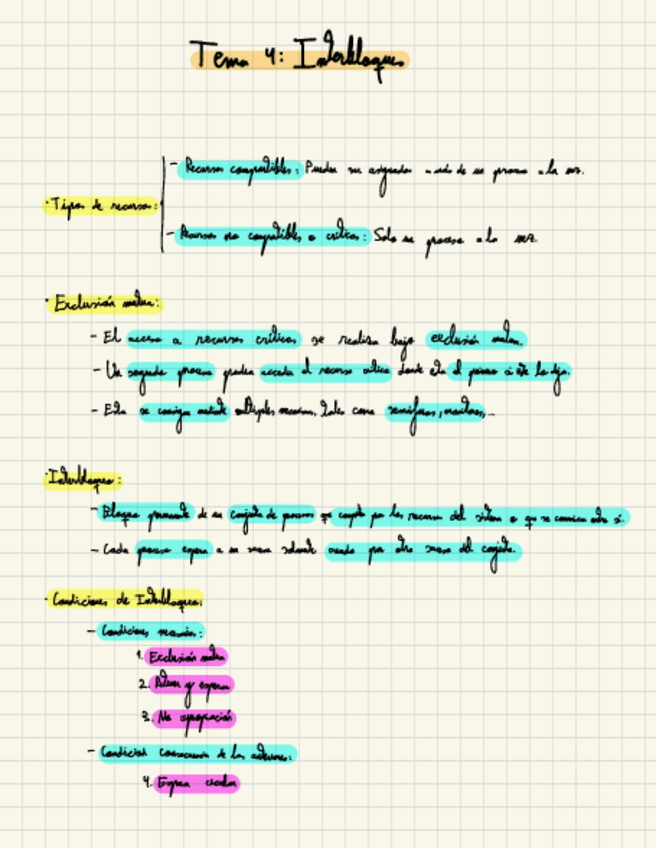 Tema 4: Interbloqueo
- Recursos compartibles: Pueden ser asignados a más de un proceso a la vez.
· Tipos de recursos:
- Recursos no compartibles o críticos: Solo un proceso a la vez
· Exclusión mutua:
- El acceso a recursos críticos se realiza bajo exclusión mutua.
- Un segundo proceso podrá acceder al recurso crítico donde está el primero si este lo deja.
- Esto se consigue mediante múltiples mecanismos, tales como semáforos, monitores,...
· Interbloqueo:
- Bloqueo permanente de un conjunto de procesos que compiten por los recursos del sistema o que se comunican entre sí.
- Cada proceso espera a un suceso solamente creado por otro suceso del conjunto.
· Condiciones de Interbloqueo:
- Condiciones necesarias:
1. Exclusión mutua
2. Retener y esperar
3. No apropiación
- Condición consecuencia de las anteriores:
4. Espera circular